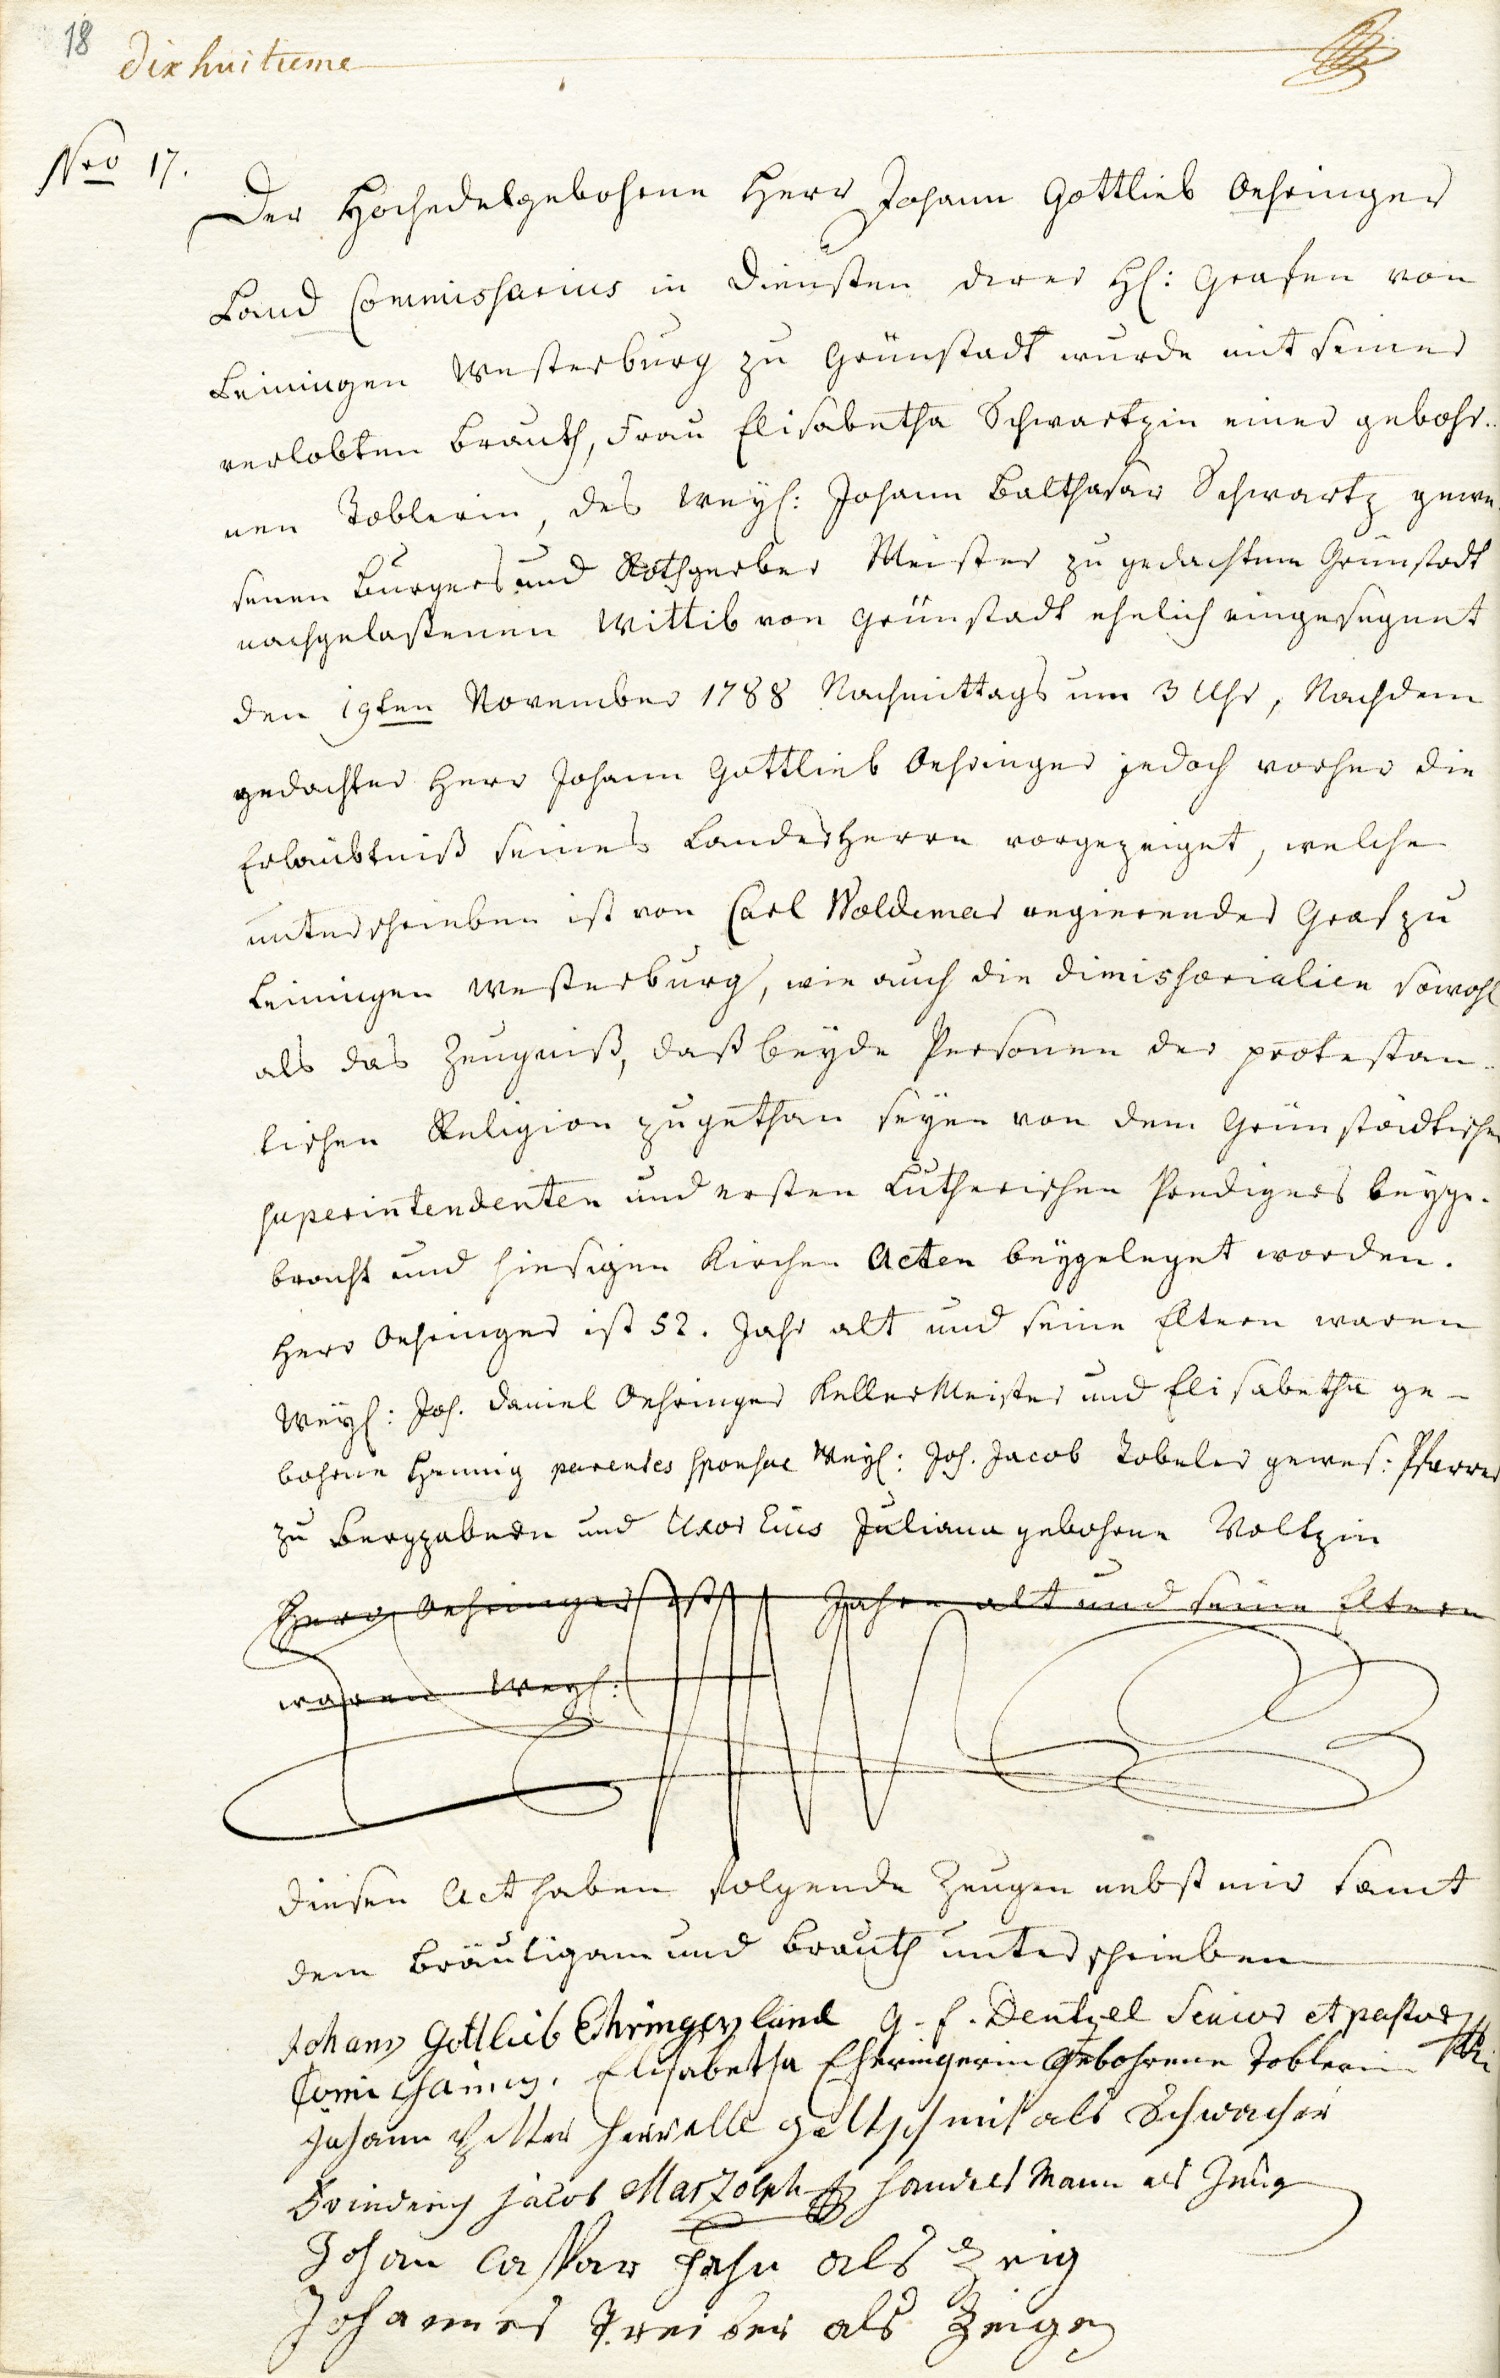 18
dix huitieme
Nro 17.
Der Hochedelgebohrne Herr Johann Gottlieb Oehringer
Land Commissarius in Diensten derer H: Grafen von
Leiningen Westerburg zu Grünstadt wurde mit seiner
verlobten Brauth, Frau Elisabetha Schwartzin einer gebohr-
nen Toblerin, des Weyl: Johann Balthasar Schwartz gewe-
senen Burgers und Rothgerber Meister zu gedachtem Grünstadt
nachgelaßenen Wittib von Grünstadt ehelich eingesegnet
den 19ten November 1788 Nachmittags um 3 Uhr, Nachdem
gedachter Herr Johann Gottlieb Oehringer jedoch vorher die
Erlaubtniß seines Landesherrn vorgezeiget, welche
unterschrieben ist von Carl Woldemar regierender Graf zu
Leiningen Westerburg, wie auch die dimissorialien sowohl
als das Zeugniß, daß beyde Personen der protestan-
tischen Religion zugethan seyen von dem Grünstädtischen
superintendenten und ersten Lutherischen Predigers beyge-
bracht und hiesigen Kirchen Acten beygeleget worden.
Herr Oehringer ist 52. Jahr alt und seine Eltern waren
Weyl: Joh. Daniel Oehringer Keller Meister und Elisabetha ge-
bohrne Hennig parentes sponsae Weyl: Joh. Jacob Tobeler gewes: Pfarrer
zu Bergzabern und Uxor Eius Juliana gebohrne Voltzin
Herr Oehringer ist Jahre alt und seine Eltern
waren Weyl:
Diesen Act haben folgende Zeugen nebst mir samt
dem Bräutigam und Brauth unterschrieben
Johann Gottlieb Ehringer land G. F. Dentzel Senior et pastor
Elisabetha Eheringerin Gebohrene Toblerin
Johann Peter als Schwacher
Friederich Jacob Marzolph Handels Mann als Zeug
Johan Caspar Hahn als Zeig
Johannes Treiber als Zeige